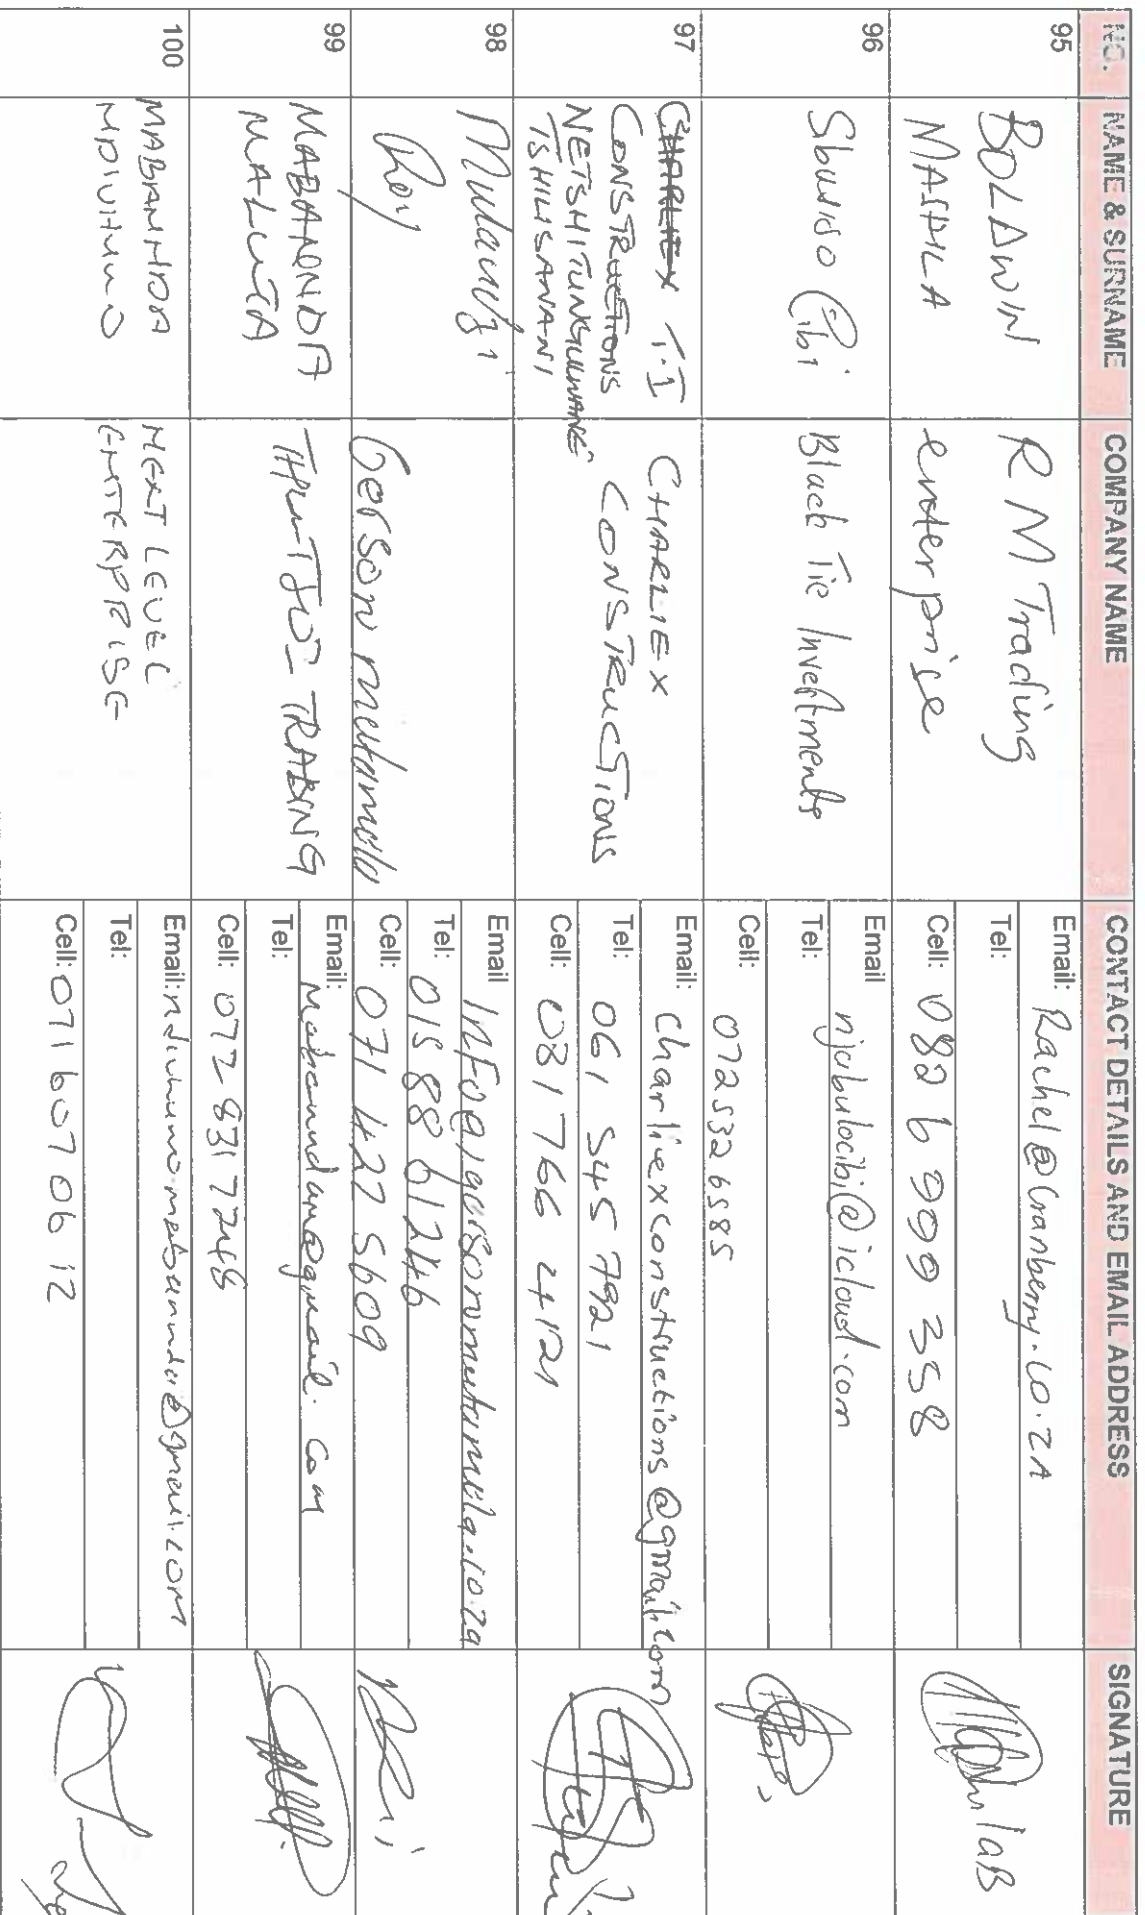 NO. NAME & SURNAME COMPANY NAME CONTACT DETAILS AND EMAIL ADDRESS SIGNATURE
95
BOLAWIN
MASHILA
R M Trading
enterprise
Email: Rachel@Cranberry.co.ZA
Tel:
Cell: 082 6 999 358
96
Sbusiso Cibi
Black Tie Investments
Email njabulocibi@icloud.com
Tel:
Cell: 072 532 6585
97
CHARLIEX T.I
CONSTRUCTIONS
NETSHITUNGULWANE
TSHILISANANI
CHARLIEX
CONSTRUCTIONS
Email: Charliexconstructions@gmail.com
Tel: 061 545 7921
Cell: 081 766 4121
98
Mulaudzi
Roy
Gerson mutamela
Email
Tel: 015 88 61246
Cell: 071 422 5609
99
MABANNDA
MALUTA
TRADING
Email: Mabaundam@gmail.com
Tel:
Cell: 072 831 7248
100
MABANNDA
NDIVHUWO
NEXT LEVEL
ENTERPRISE
Email: ndivhuwo.mabannda@gmail.com
Tel:
Cell: 071 607 06 12